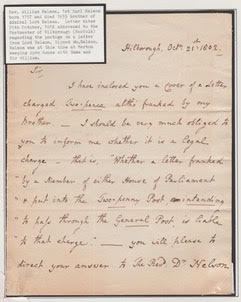 Rev. William Nelson, 1st Earl Nelson
born 1757 and died 1835 brother of
Admiral Lord Nelson. Letter dated
21st October, 1802 addressed to the
Postmaster of Hilborough (Norfolk)
regarding the postage on a letter
from Lord Nelson, signed Wm.Nelson.
Nelson was at this time at Merton
keeping open house with Emma and
Sir William.
Hilbrough, Octr. 21st 1802.
Sir,
I have inclosed you a cover of a letter
charged Two-pence altho' franked by my
Brother — I should be very much obliged to
you to inform me whether it is a legal
charge — that is, "Whether a letter franked
by a Member of either House of Parliament
& put into the Two-penny Post intending
to pass through the General Post is liable
to that charge:— you will please to
direct your answer to The Revd Dr Nelson